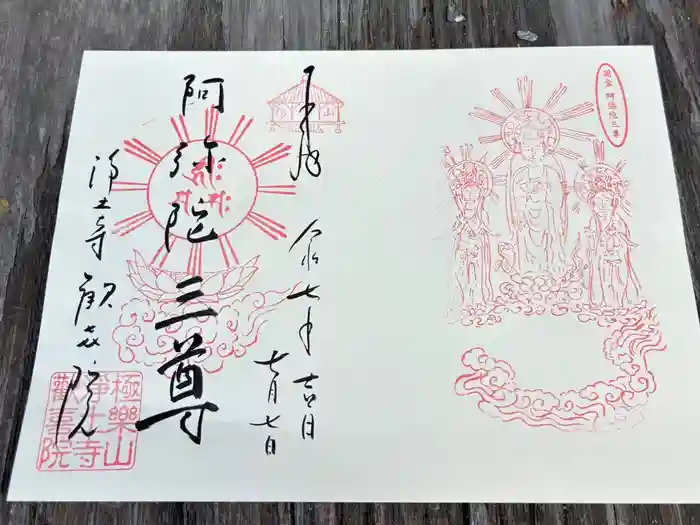 国宝 阿弥陀三尊
奉拝
令和七年 吉日
七月七日
阿弥陀三尊
浄土寺 歓喜院
極樂山
浄土寺
歡喜院